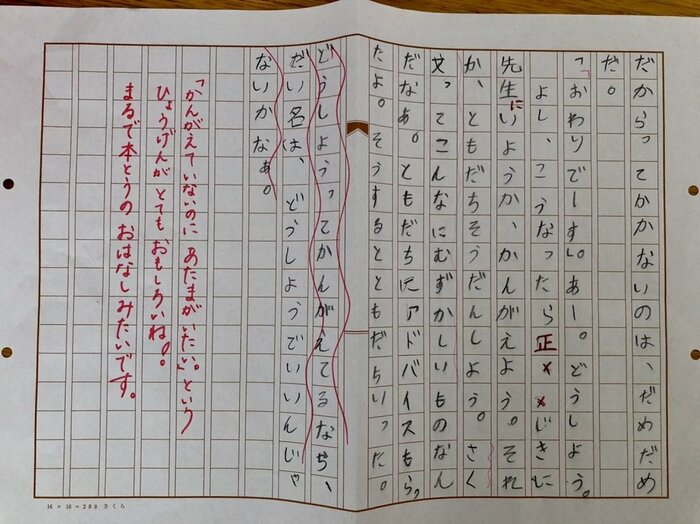 だからってかかないのは、だめだめ
だ。
「おわりでーす」。あー。どうしよう。
よし、こうなったら正××じきに
先生にいようか、かんがえよう。それ
か、ともだちそうだんしよう。さく
文ってこんなにむずかしいものなん
だなあ。ともだちにアドバイスもらっ
たよ。そうするとともだちいった。
どうしようってかんがえてるなら、
だい名は、どうしようでいいんじゃ
ないかなぁ。
「かんがえていないのに あたまがいたい。」という
ひょうげんが とても おもしろいね。
まるで本とうの おはなしみたいです。
16 × 18 = 288 さくら